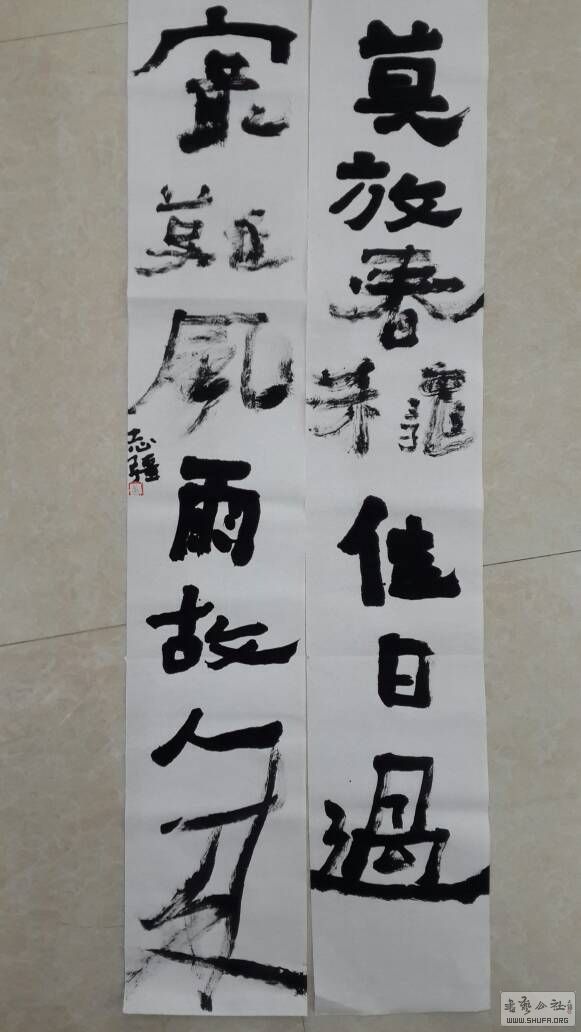 莫放春秋佳日過
最難風雨故人來
志強
書藝公社
WWW.SHUFA.ORG